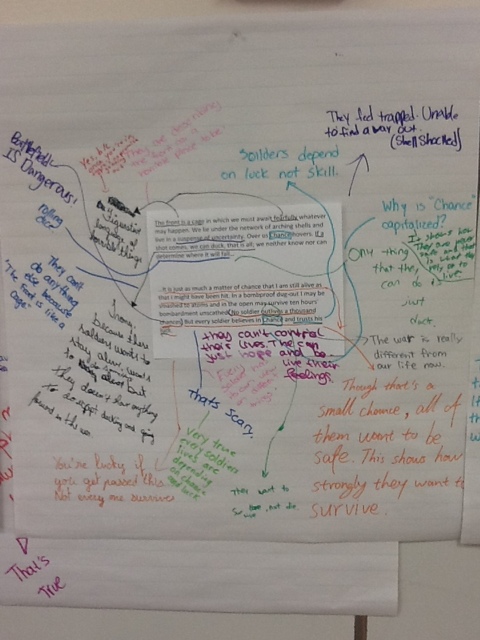 They feel trapped. Unable
to find a way out.
(Shell Shocked)
Battlefield
IS Dangerous!
rolling
dice
Soilders depend
on luck not skill.
Why is "Chance"
capitalized?
Only thing
that they
can do is
just
duct.
The front is a cage in which we must await fearfully whatever
may happen. We lie under the network of arching shells and
live in a suspense of uncertainty. Over us Chance hovers. If a
shot comes, we can duck, that is all; we neither know nor can
determine where it will fall.
It is just as much a matter of chance that I am still alive as
that I might have been hit. In a bombproof dug-out I may be
smashed to atoms and in the open may survive ten hours'
bombardment unscathed. No soldier outlives a thousand
chances. But every soldier believes in Chance and trusts his
luck.
They can't
do anything
else because
"The Front is like a
Cage"
Irony:
because these
soldiers want to
stay alive, want
to
but
they don't have anything
to do except ducking and going
forward in the war.
they can't control
their lives. The can
just hope and be
live their
feelings.
The war is really
different from
our life now.
that's scary.
Very true
every soldiers
lives are
depending
on chance
and luck
Though that's a
small chance, all of
them want to be
safe. This shows how
strongly they want to
survive.
You're lucky if
you get passed this.
Not every one survives
They want to
survive, not die.
That's
True